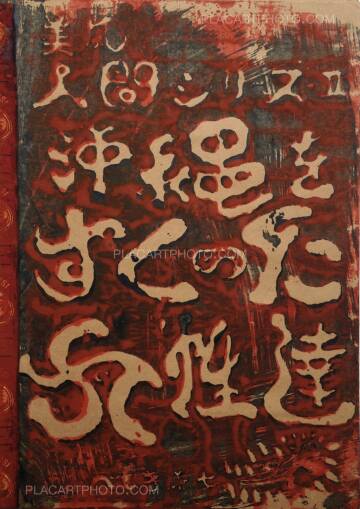 人間シリーズⅡ
沖縄を
すくった
女性達
PLACARTPHOTO.COM
PLACARTPHOTO.COM
PLACARTPHOTO.COM